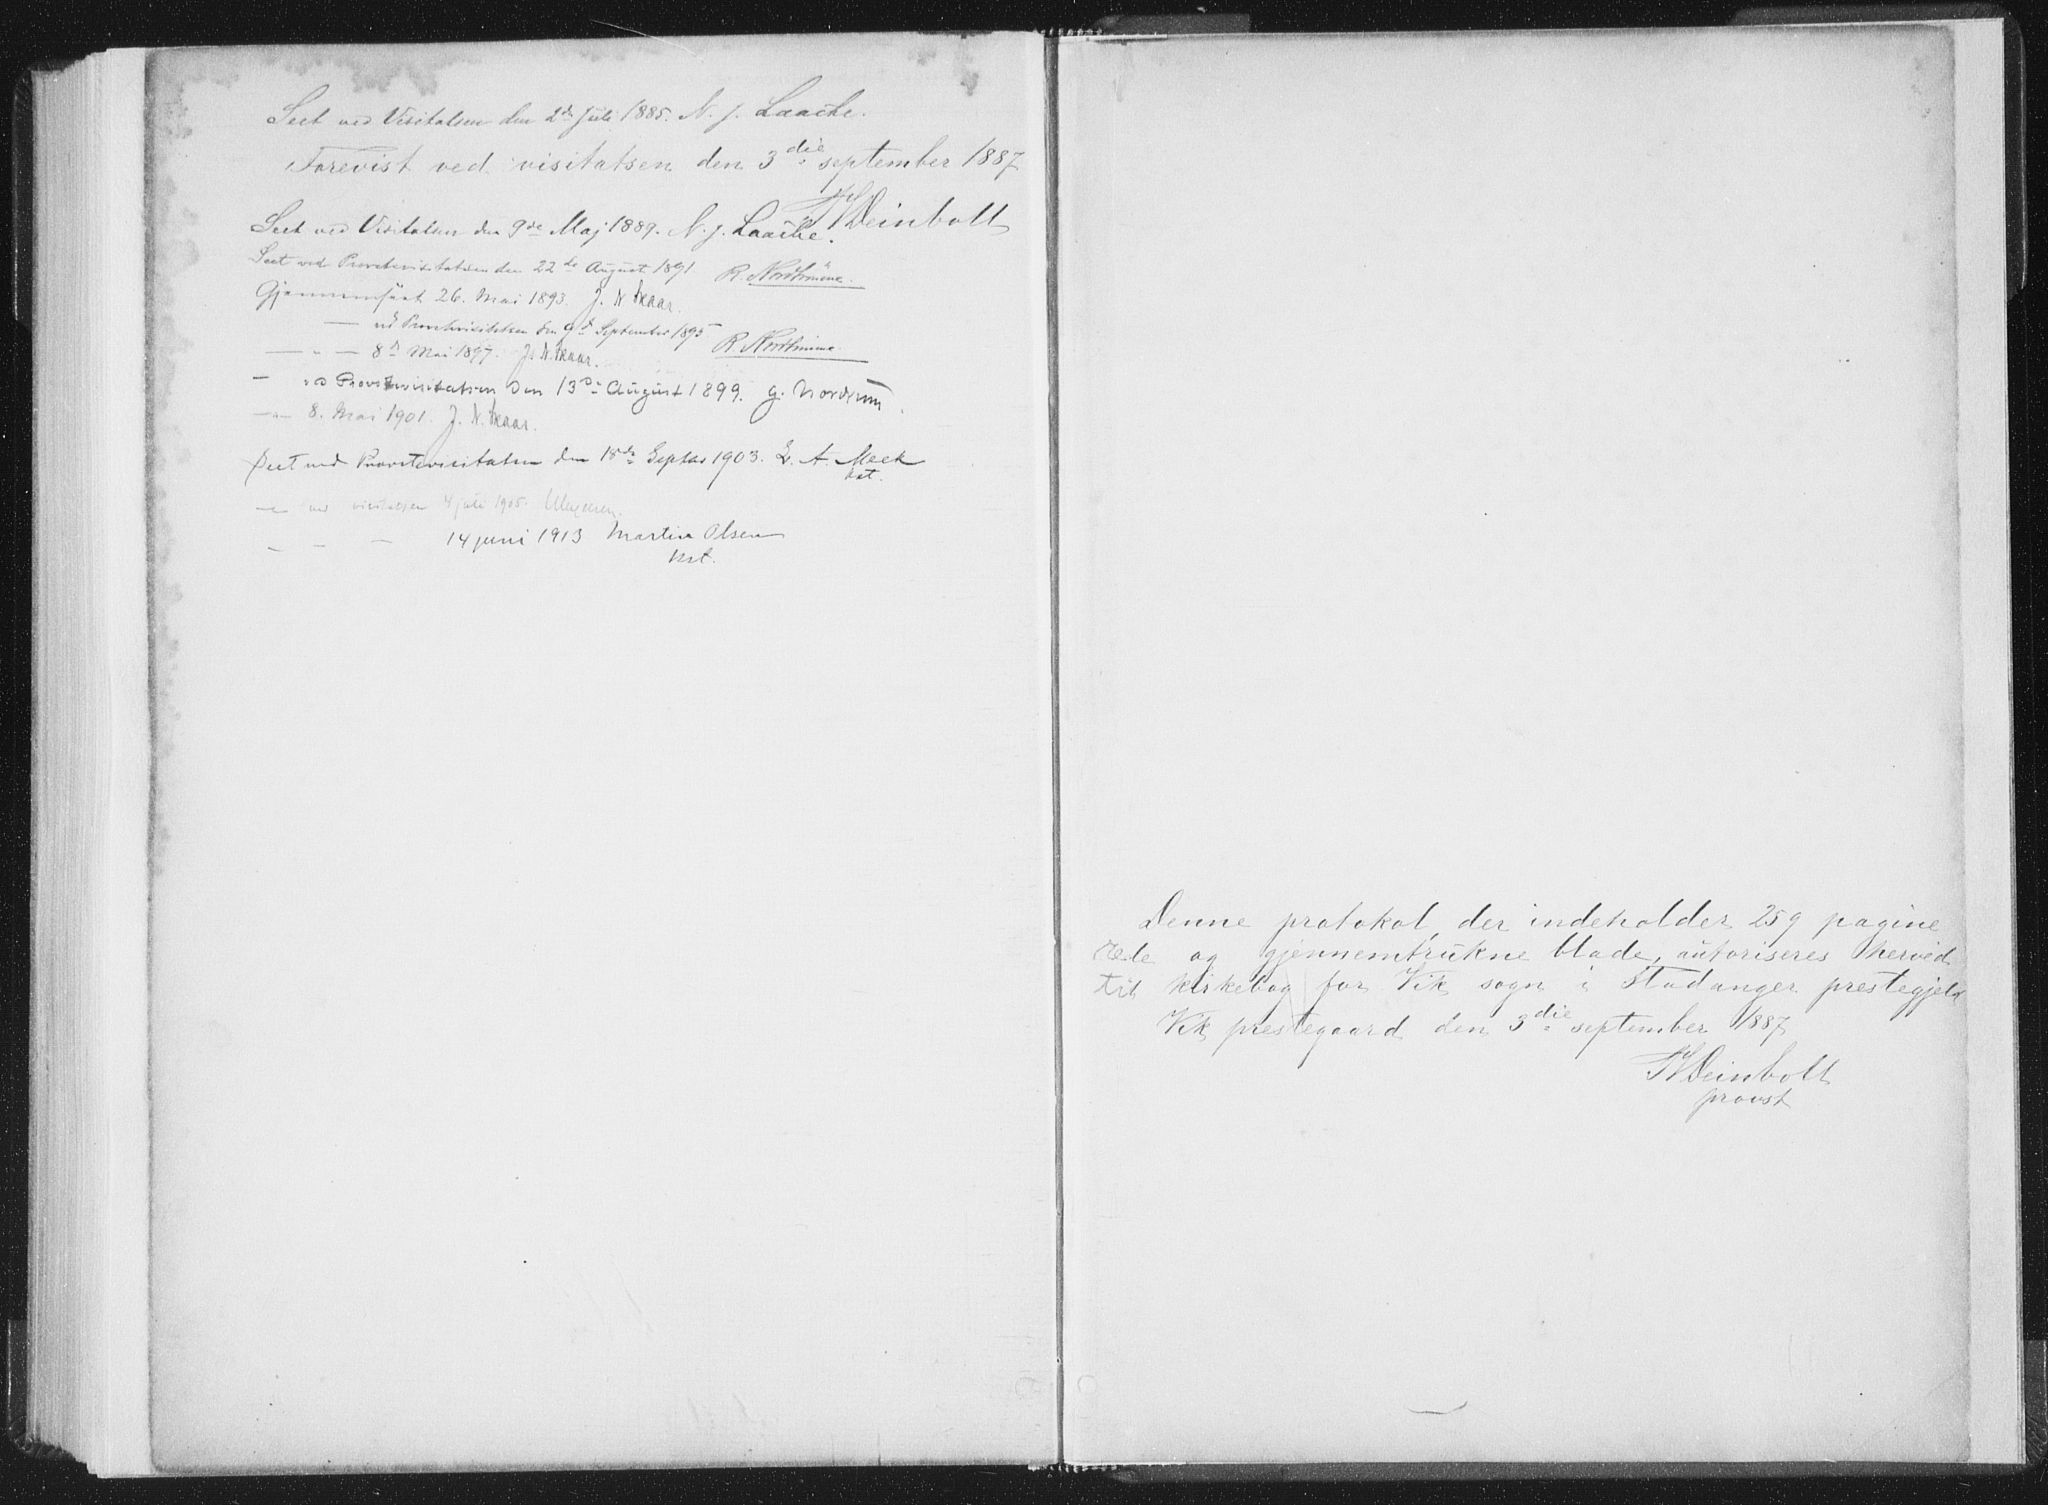 Seet ved Visitatsen den 2de Juli 1885. N. J. Laache.
Forevist ved visitatsen den 3die september 1887
Deinboll
Seet ved Visitatsen den 9de Maj 1889. N. J. Laache.
Seet ved Provstevisitatsen den 22de August 1891 R. Nordtømme.
Gjennemført 26. Mai 1893. J. N. Skaar.
— ved Provstevisitatsen den 9d September 1895 R. Nordtømme
— " — 8d Mai 1897. J. N. Skaar.
— ved Provstevisitatsen den 13de August 1899. G. Nordrum.
— " — 8. Mai 1901. J. N. Skaar.
Seet ved Provstevisitatsen den 18de Septbr 1903. L. A. Moek
kst.
— " — ved visitatsen 4 juli 1905.
— — — 14 juni 1913 Martin Olsen
kst.
Denne protokol, der indeholder 259 pagine
rede og gjennemtrukne blade, autoriseres herved
til kirkebog for Vik sogn i Stadanger prestegjeld
Vik prestegaard den 3die september 1887
Deinboll
provst